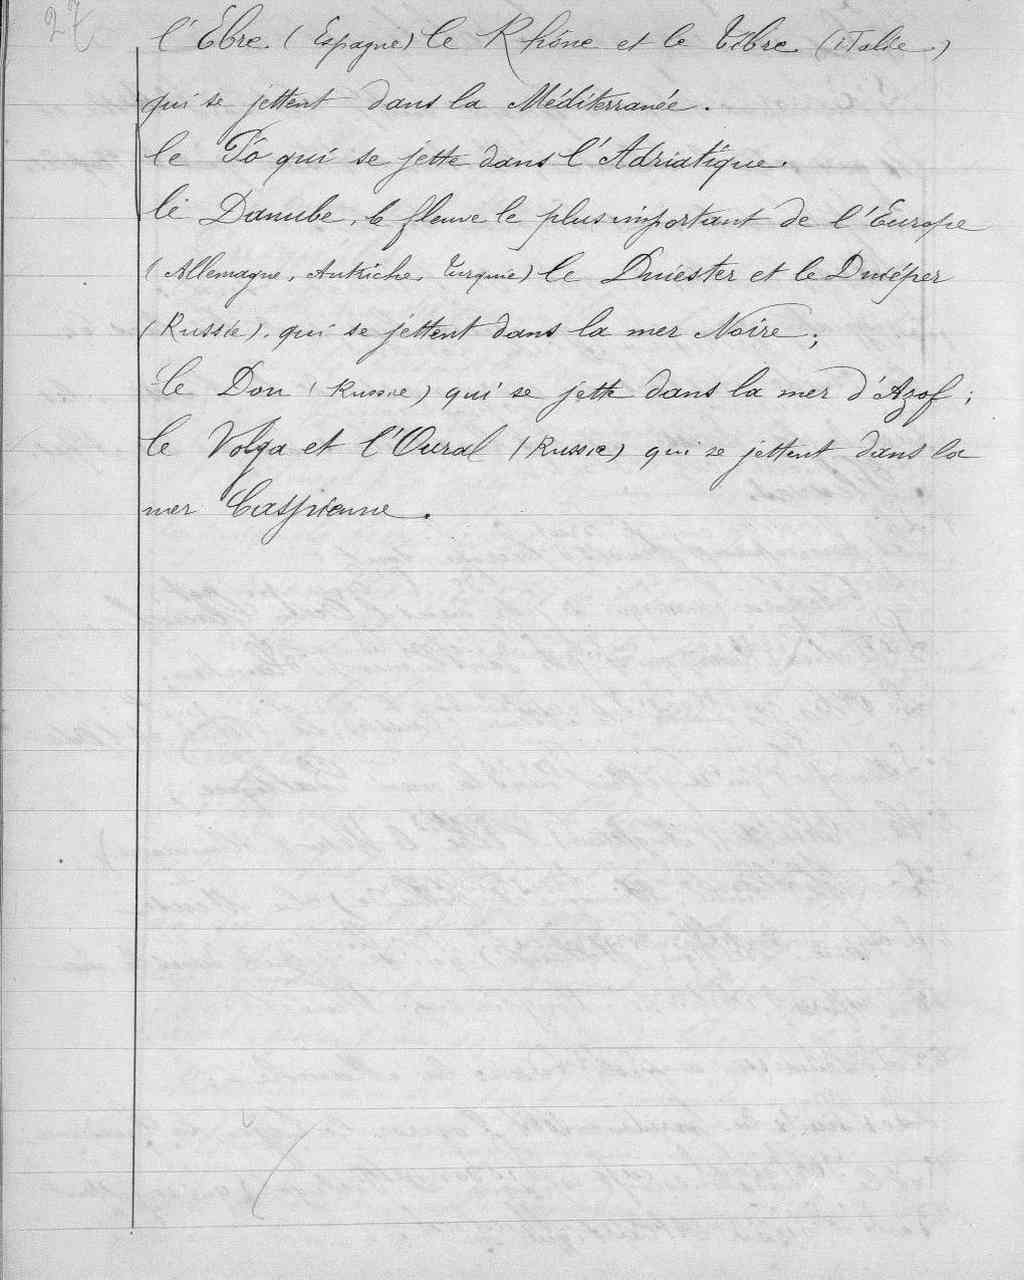 27
l'Ebre. (Espagne) le Rhône et le Tibre. (iTalie.)
qui se jettent dans la Méditerranée.
le Pô qui se jette dans l'Adriatique.
le Danube, le fleuve le plus important de l'Europe
(Allemagne, Autriche, Turquie) le Dniester et le Dniéper
(Russie). qui se jettent dans la mer Noire;
le Don (Russie) qui se jette dans la mer d'Azof;
le Volga et l'Oural (Russie) qui se jettent dans la
mer Caspienne.